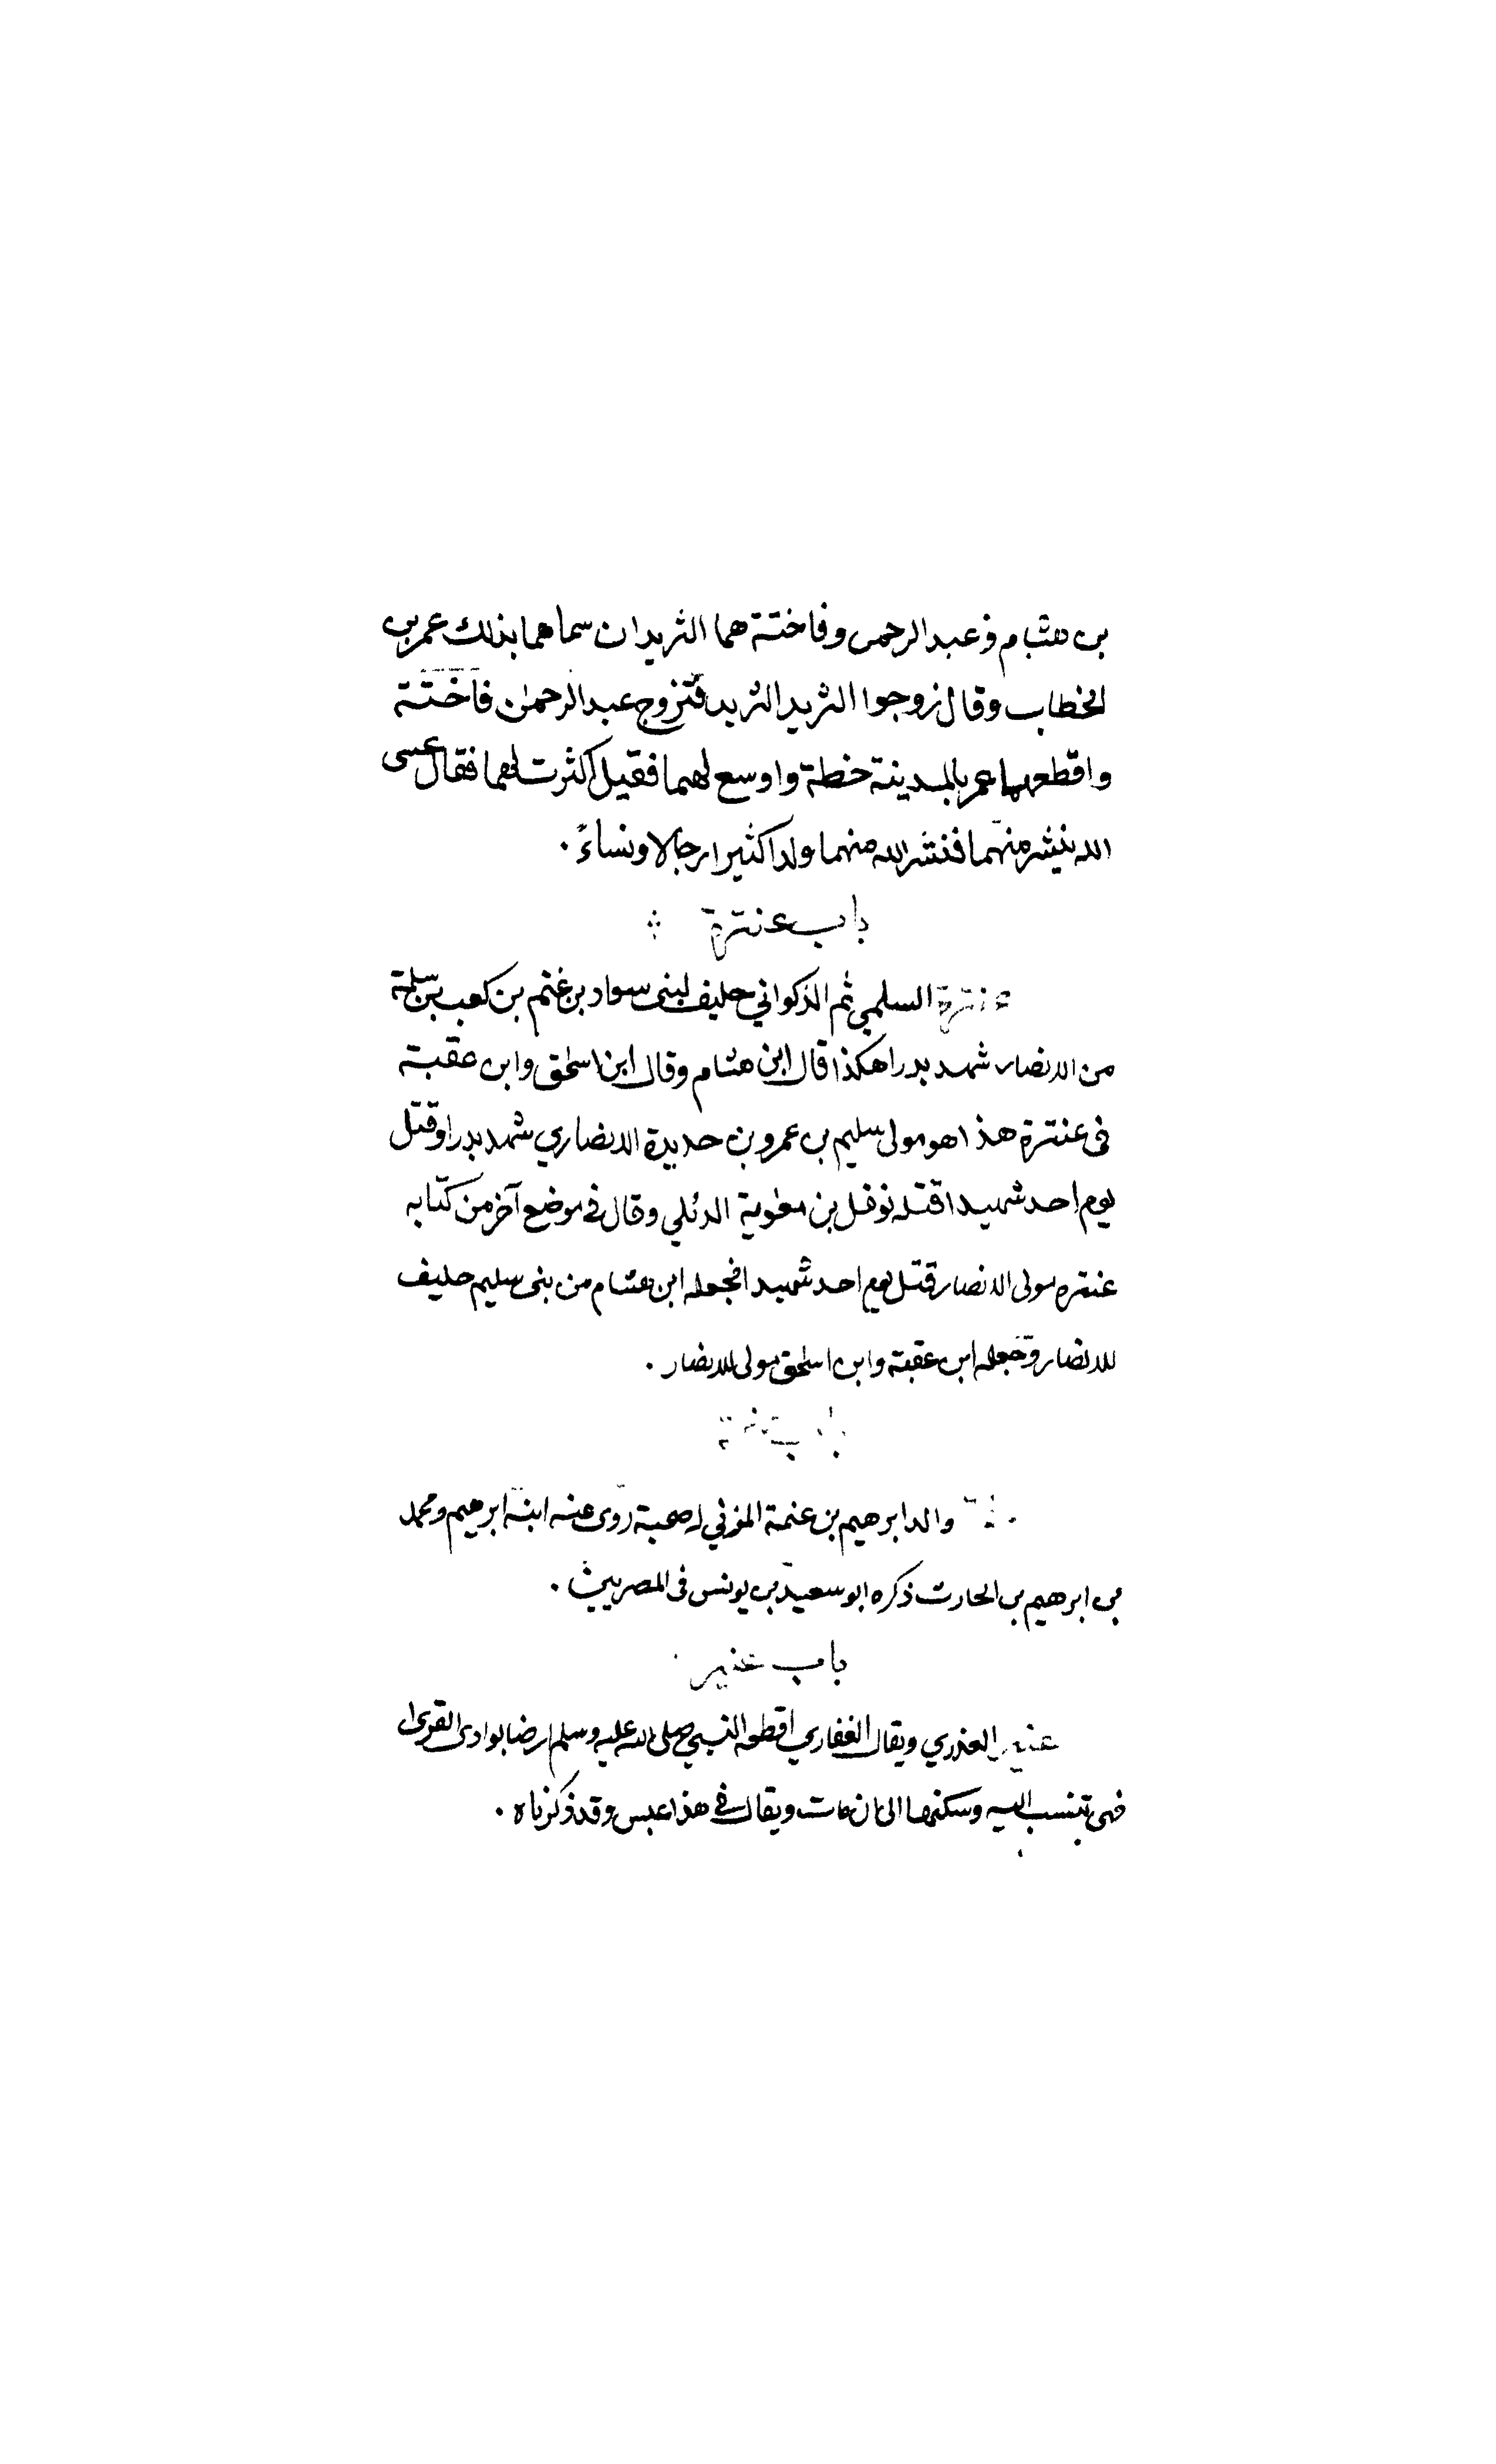 بن هشام فعبد الرحمن وفاختة هما الثريدان سماهما بذلك عمر بن
الخطاب وقال زوجوا الثريد الثريد فتزوج عبد الرحمن فاختة
واقطعهما عمر بالمدينة خطة واوسع لهما فقيل اكثرت لهما فقال عسى
الله ينشر منهما فنشر الله منهما ولدا كثيرا رجالا ونساءً .
باب عنترة
عنترة السلمي ثم الذكواني حليف لبنى سواد بن غنم بن كعب بن سلمة
من الانصار شهد بدرا هكذا قال ابن هشام وقال ابن اسحق وابن عقبة
فى عنترة هذا هو مولى سليم بن عمرو بن حديدة الانصاري شهد بدرا وقتل
يوم احد شهيدا قتله نوفل بن معوية الدئلي وقال في موضع آخر من كتابه
عنتره مولى الانصار قتل يوم احد شهيدا فجعله ابن هشام من بنى سليم حليف
للانصار وجعله ابن عقبة وابن اسحق مولى للانصار .
باب
والد ابرهيم بن عنمة المزني له صحبة روى عنه ابنه ابرهيم ومحمد
بن ابرهيم بن الحارث ذكره ابو سعيد بن يونس فى المصريين .
باب عنيز
عنيز العذري ويقال الغفاري اقطعه النبي صلى الله عليه وسلم ارضا بوادى القرى
فهى تنسب اليه وسكنها الى ان مات ويقال في هذا عبس وقد ذكرناه .